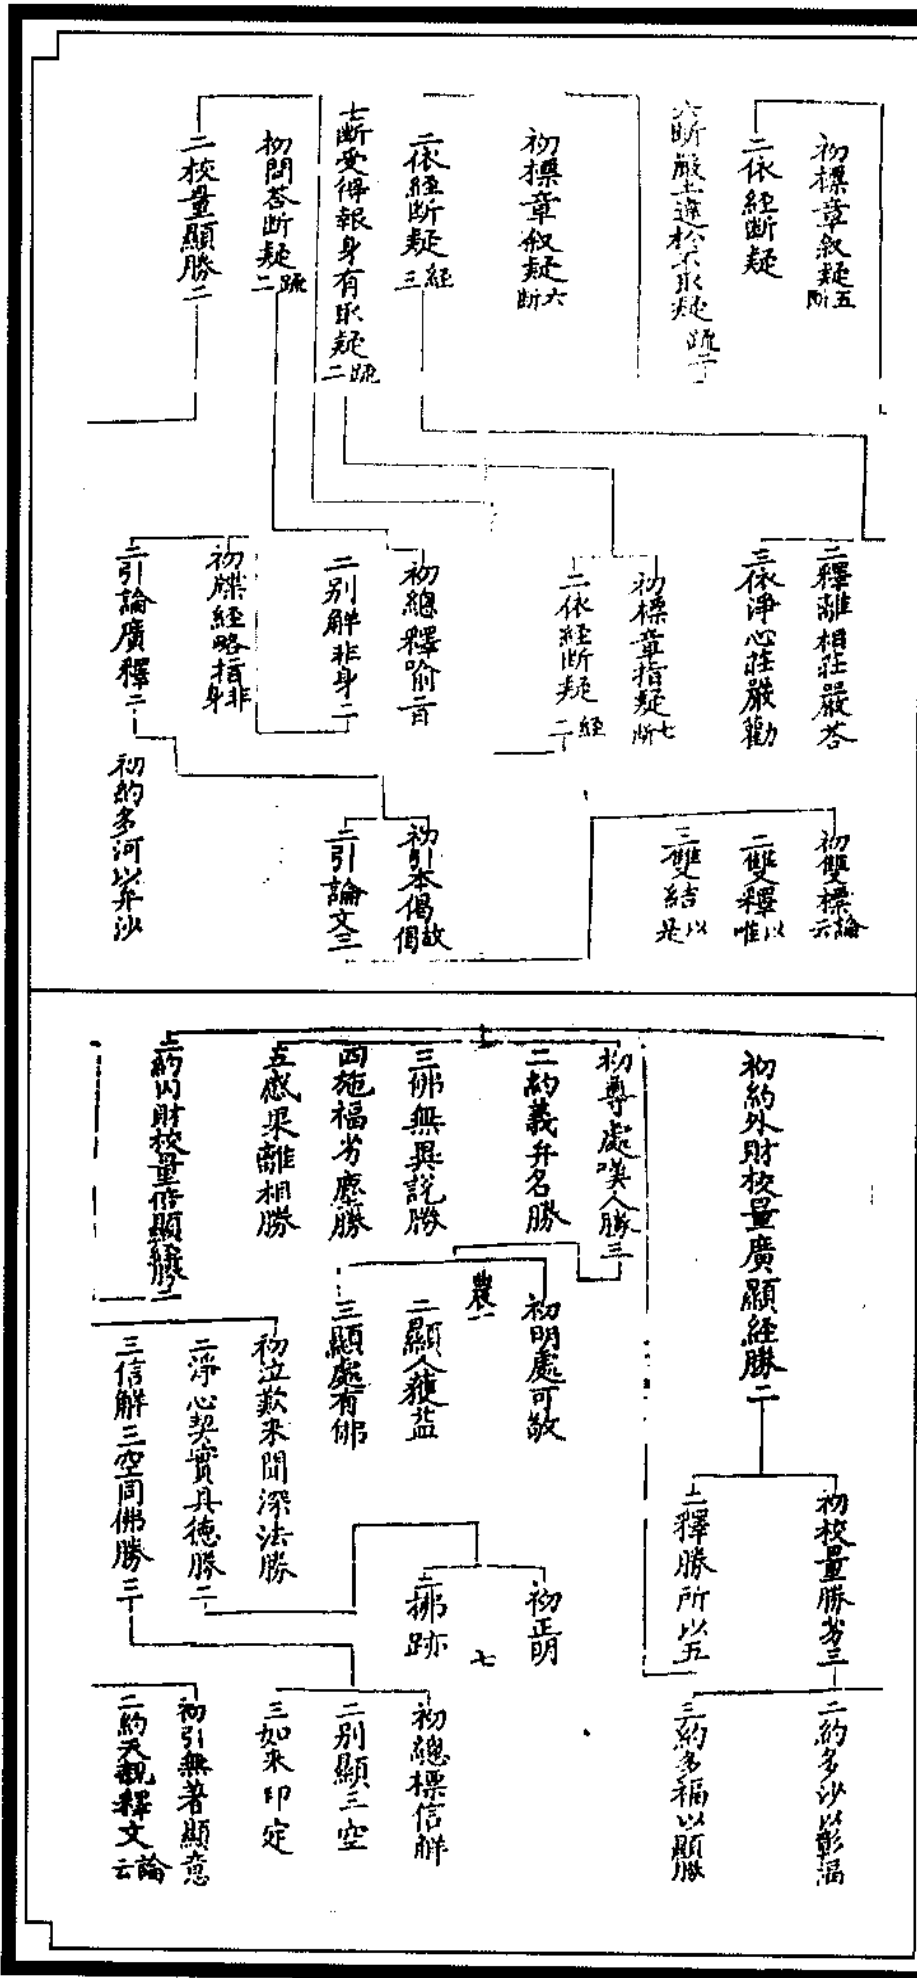 初標章叙疑五断
二依経断疑
六断嚴土違於不取疑疏二
初標章叙疑六断
二依經断疑経三
七断受得報身有取疑疏二
初問荅断疑疏二
二校量顯勝二
二釋離相莊嚴荅
三依淨心莊嚴勸
初標章指疑七断
二依経断疑経二
初總釋喻旨
二别解非身二
初牒経略指非身
二引論廣釋二
初雙標論云
二雙釋以唯
三雙結以是
初引本偈故偈
二引論文三
初約多河以弁沙
初約外財校量廣顯経勝二
初尊處嘆人勝三
二約義弁名勝
三佛無異說勝
四施福劣塵勝
五感果離相勝
二約内財校量倍顯経勝二
初明處可敬
農一
二顯人獲益
三顯處有佛
初泣歎未聞深法勝
二淨心契實具德勝二
三信解三空同佛勝三
初校量勝劣三
二釋勝所以五
初正明
七
二拂跡
二約多沙以彰福
三約多福以顯勝
初總標信解
二别顯三空
三如来印定
初引無著顯意
二約天親釋文論云